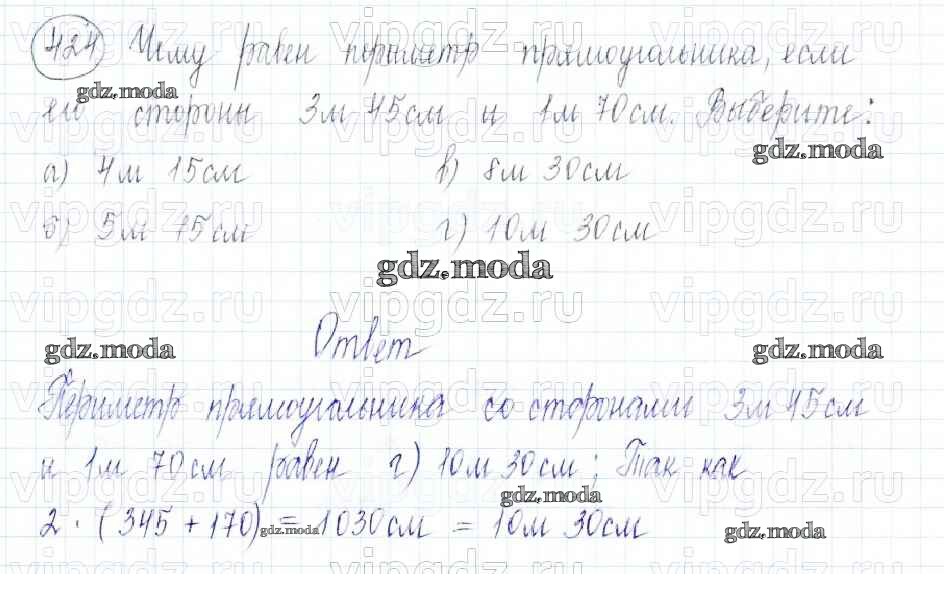 424 Чему равен периметр прямоугольника, если
его стороны 3м 45см и 1м 70см. Выберите:
а) 4м 15см в) 8м 30см
б) 5м 15см г) 10м 30см
Ответ
Периметр прямоугольника со сторонами 3м 45см
и 1м 70см равен г) 10м 30см; Так как
2 · (345 + 170) = 1030см = 10м 30см
gdz.moda
vipgdz.ru